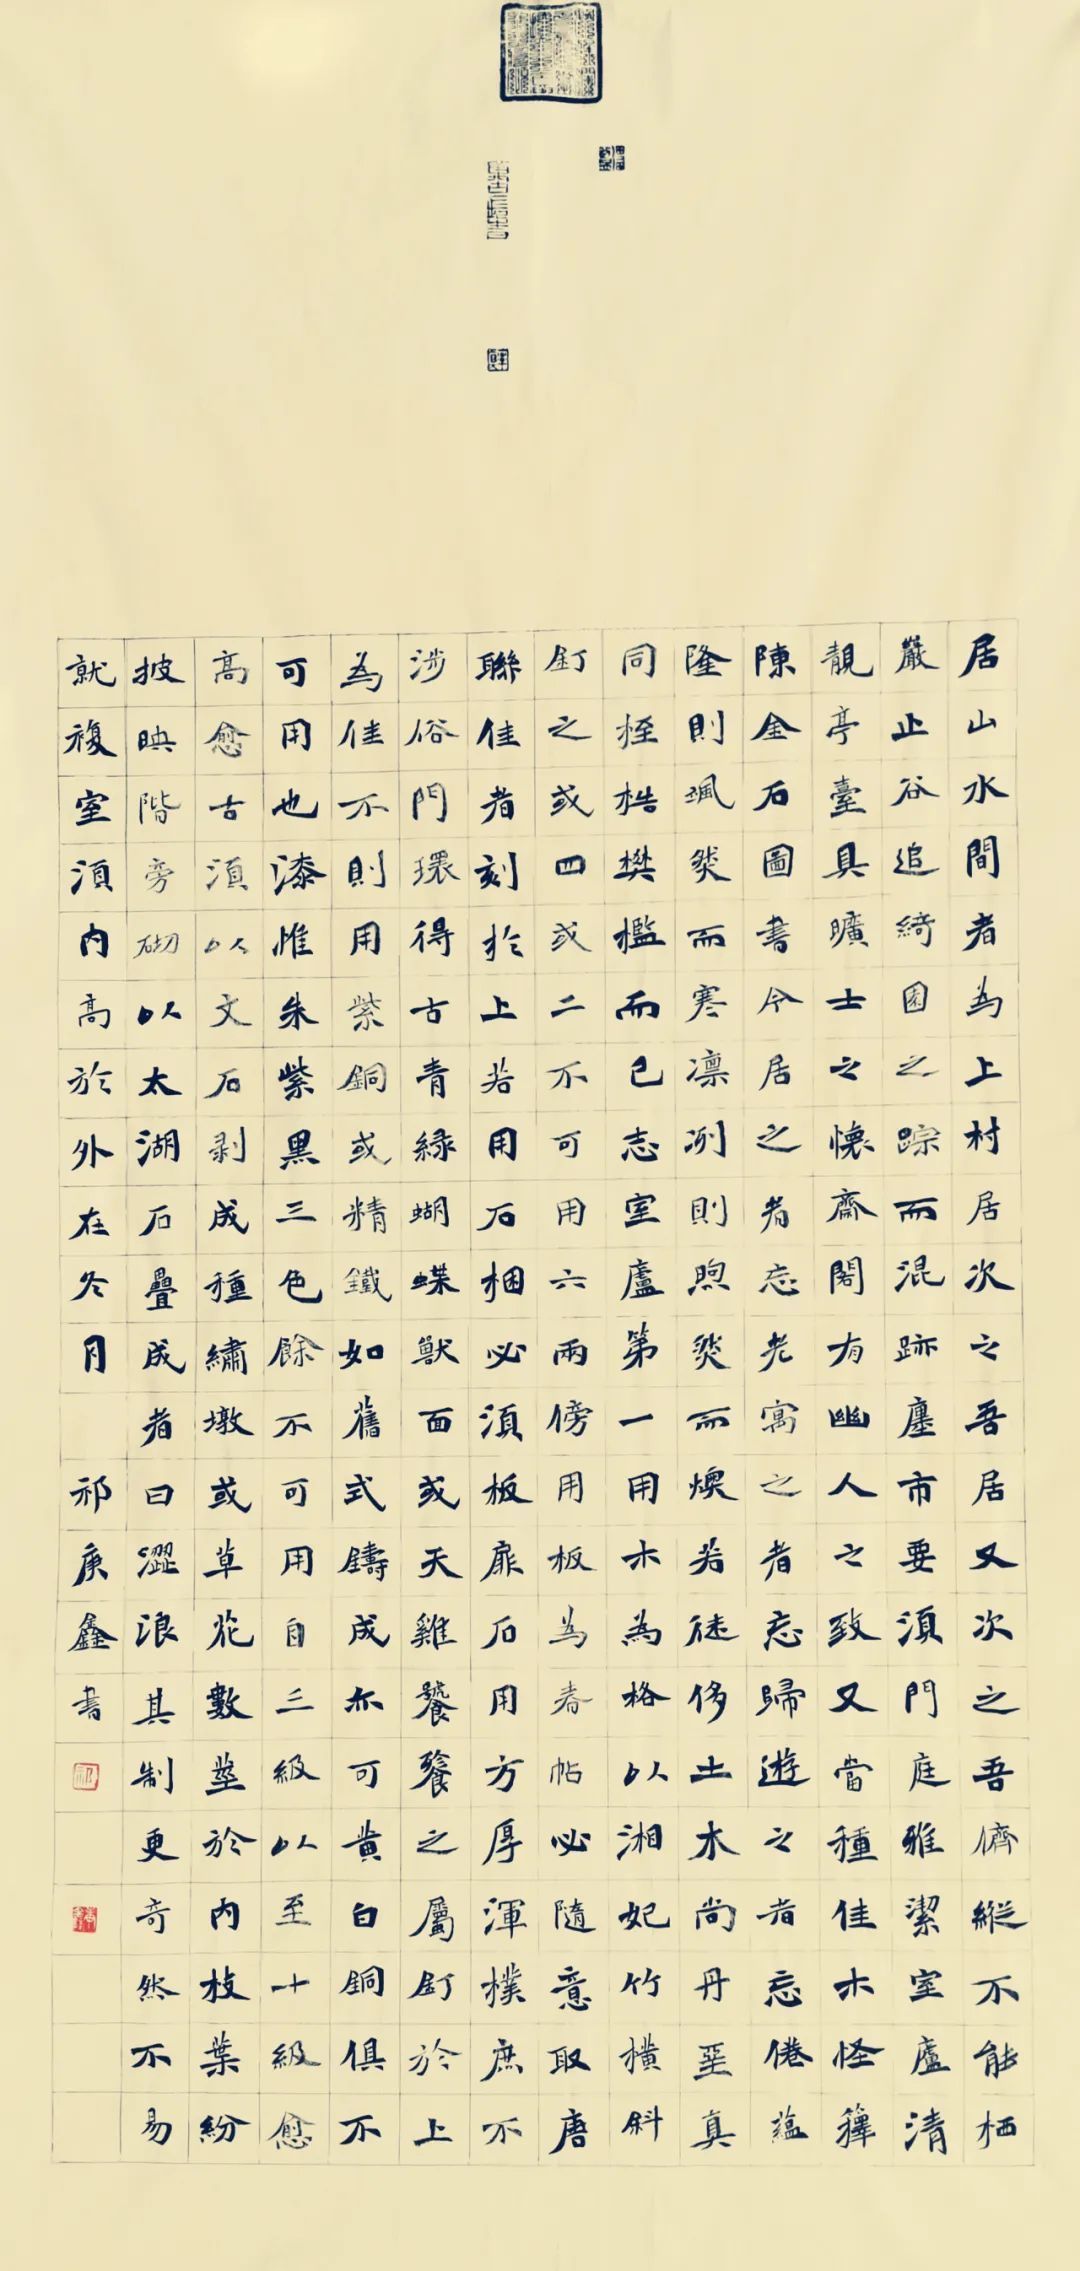 居山水間者為上村居次之吾居又次之吾儕縱不能栖
巖止谷追綺園之踪而混跡廛市要須門庭雅潔室廬清
靚亭臺具曠士之懷齋閣有幽人之致又當種佳木怪籜
陳金石圖書令居之者忘老寓之者忘歸遊之者忘倦蘊
隆則颯然而寒凛冽則煦然而燠若徒侈土木尚丹堊真
同桎梏樊檻而已志室廬第一用木為格以湘妃竹橫斜
釘之或四或二不可用六兩傍用板為春帖必隨意取唐
聯佳者刻於上若用石梱必須板扉石用方厚渾樸庶不
涉俗門環得古青綠蝴蝶獸面或天雞饕餮之屬釘於上
為佳不則用紫銅或精鐵如舊式鑄成亦可黄白銅俱不
可用也漆惟朱紫黑三色餘不可用自三級以至十級愈
高愈古須以文石剥成種繡墩或草花數莖於內枝葉紛
披映階旁砌以太湖石疊成者曰澀浪其制更奇然不易
就複室須內高於外在冬月 祁庚鑫書